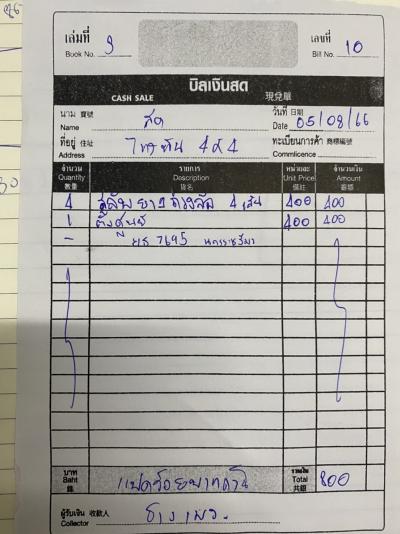 เล่มที่ 9 เลขที่
Book No. Bill No. 10
บิลเงินสด
CASH SALE 現兌單
นาม 寶號 สด วันที่ 日期
Name Date 05/08/66
ที่อยู่ 住址 4 ทะเบียนการค้า 商標編號
Address Commlicence
จำนวน รายการ หน่วยละ จำนวนเงิน
Quantity Description Unit Price Amount
數量 貨名 備註 銀額
4 ยาง 4 เส้น 400 400
1 ตั้งศูนย์ 400 400
- 7695 นครราชสีมา
บาท รวมเงิน
Baht แปดร้อยบาทถ้วน Total 800
銖 共銀
ผู้รับเงิน 收款人
Collector